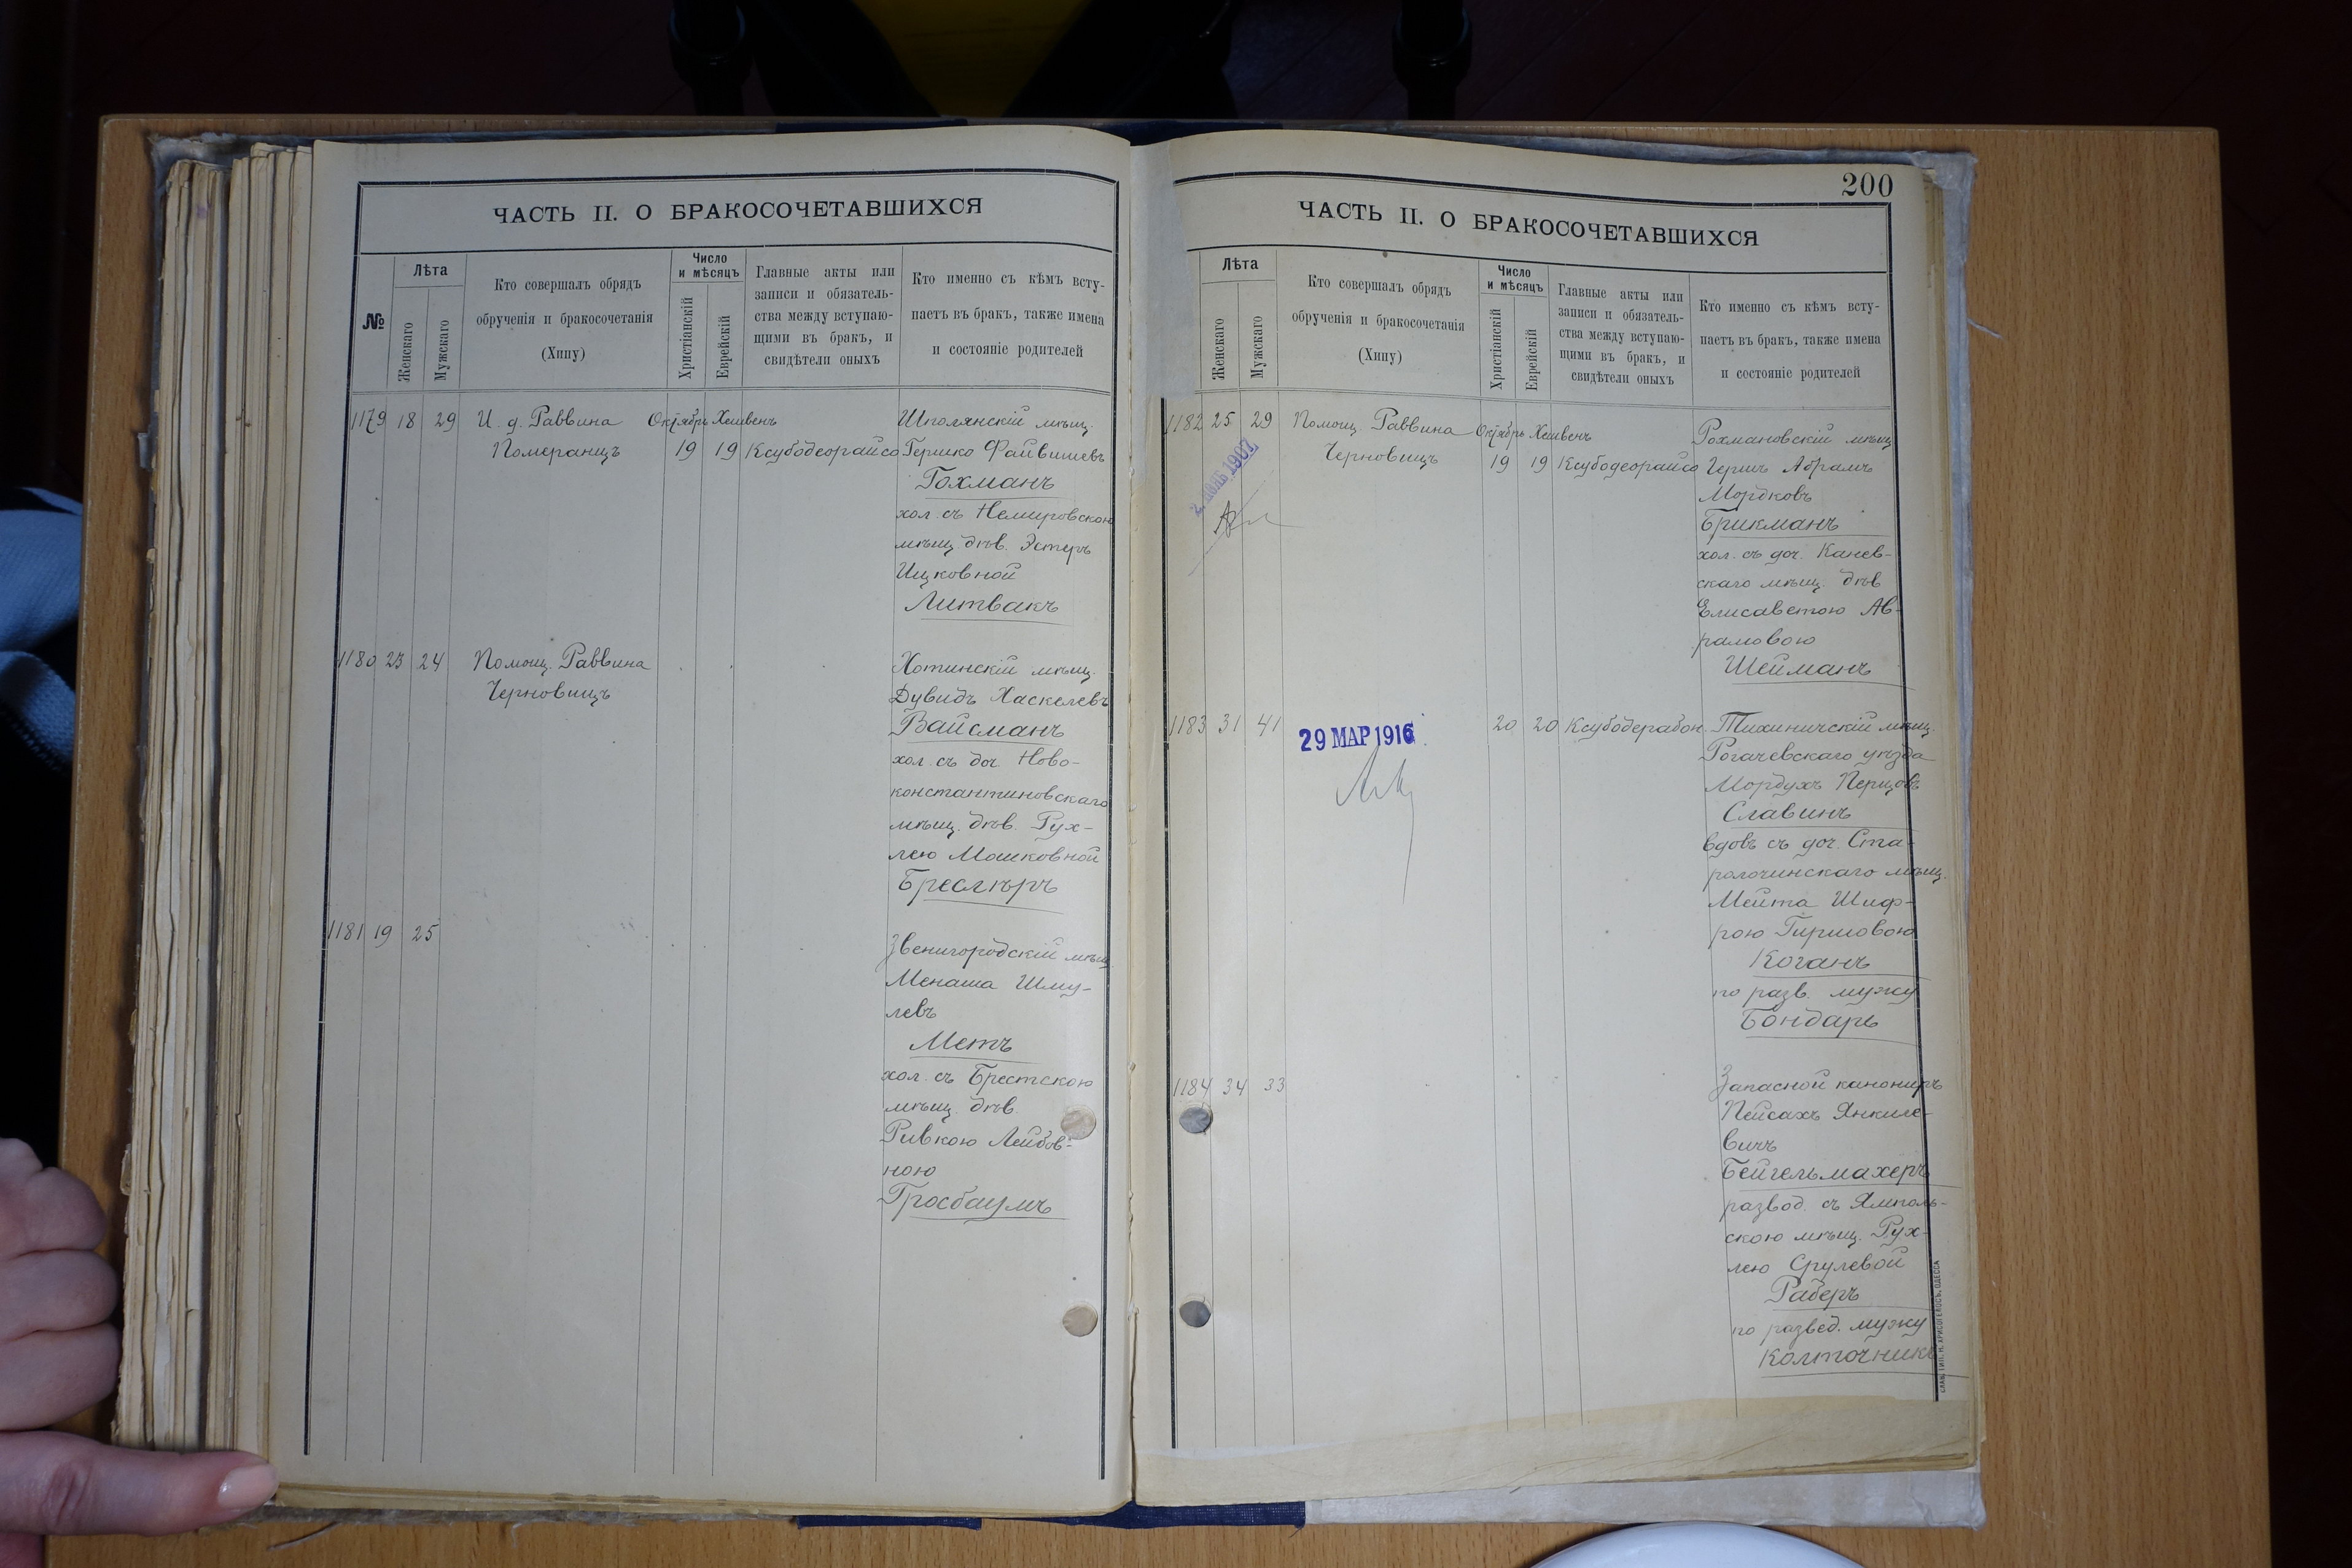 ЧАСТЬ II. О БРАКОСОЧЕТАВШИХСЯ
№
Лѣта
Женскаго
Мужскаго
Кто совершалъ обрядъ
обрученія и бракосочетанія
(Хипу)
Число
и мѣсяцъ
Христіанскій
Еврейскій
Главные акты или
записи и обязатель-
ства между вступаю-
щими въ бракъ, и
свидѣтели оныхъ
Кто именно съ кѣмъ всту-
паетъ въ бракъ, также имена
и состояніе родителей
1179 18 29 И. д. Раввина Октябрь Хешвенъ Шполянскій мѣщ.
Померанцъ 19 19 Ксубодеорайсо Гершко Файвишевъ
Гохманъ
хол. съ Немировскою
мѣщ. дѣв. Эстеръ
Ицковной
Литвакъ
1180 23 24 Помощ. Раввина Хотинскій мѣщ.
Черновицъ Дувидъ Хаскелевъ
Вайсманъ
хол. съ доч. Ново-
константиновскаго
мѣщ. дѣв. Рух-
лею Мошковной
Бреслѣръ
1181 19 25 Звенигородскій мѣщ.
Менаша Шму-
левъ
Метъ
хол. съ Брестскою
мѣщ. дѣв.
Ривкою Лейбов-
ною
Гросбаумъ
200
ЧАСТЬ II. О БРАКОСОЧЕТАВШИХСЯ
Лѣта
Женскаго
Мужскаго
Кто совершалъ обрядъ
обрученія и бракосочетанія
(Хипу)
Число
и мѣсяцъ
Христіанскій
Еврейскій
Главные акты или
записи и обязатель-
ства между вступаю-
щими въ бракъ, и
свидѣтели оныхъ
Кто именно съ кѣмъ всту-
паетъ въ бракъ, также имена
и состояніе родителей
1182 25 29 Помощ. Раввина Октябрь Хешвенъ Рохмановскій мѣщ.
Черновицъ 19 19 Ксубодеорайсо Гершъ Абрамъ
1907
Мордковъ
Брикманъ
хол. съ доч. Канев-
скаго мѣщ. дѣв
Елисаветою Ав-
рамовою
Шейманъ
1183 31 41 29 МАР 1916 20 20 Ксубодерабон Тихиничскій мѣщ.
Рогачевскаго уѣзда
Мордухъ Перцовъ
Славинъ
вдовъ съ доч. Ста-
ролочинскаго мѣщ.
Мейта Шиф-
рою Гиршовою
Коганъ
по разв. мужу
Бондарь
1184 34 33 Запасной канониръ
Пейсахъ Янкиле-
вичъ
Бейгельмахеръ
развод. съ Ямполь-
скою мѣщ. Рух-
лею Срулевой
Раберъ
по развед. мужу
Колточникъ
СЛАВ. ТИП. Н. ХРИСОГЕЛОСЪ, ОДЕССА